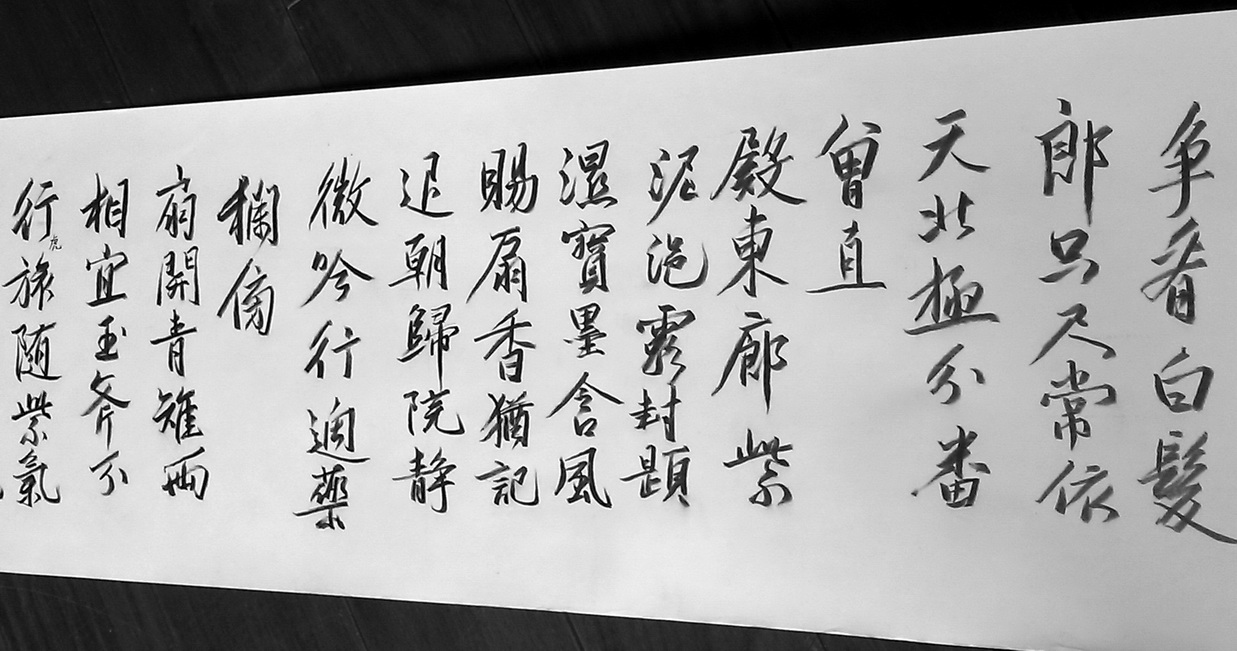 争看白髮
郎只尺常依
天北極分番
曾直
殿東廊紫
泥浥露封題
濕寶墨含風
賜扇香猶記
退朝歸院静
微吟行週藥
欄傍
扇開青雉兩
相宜玉斧不
行旅隨紫氣
虎